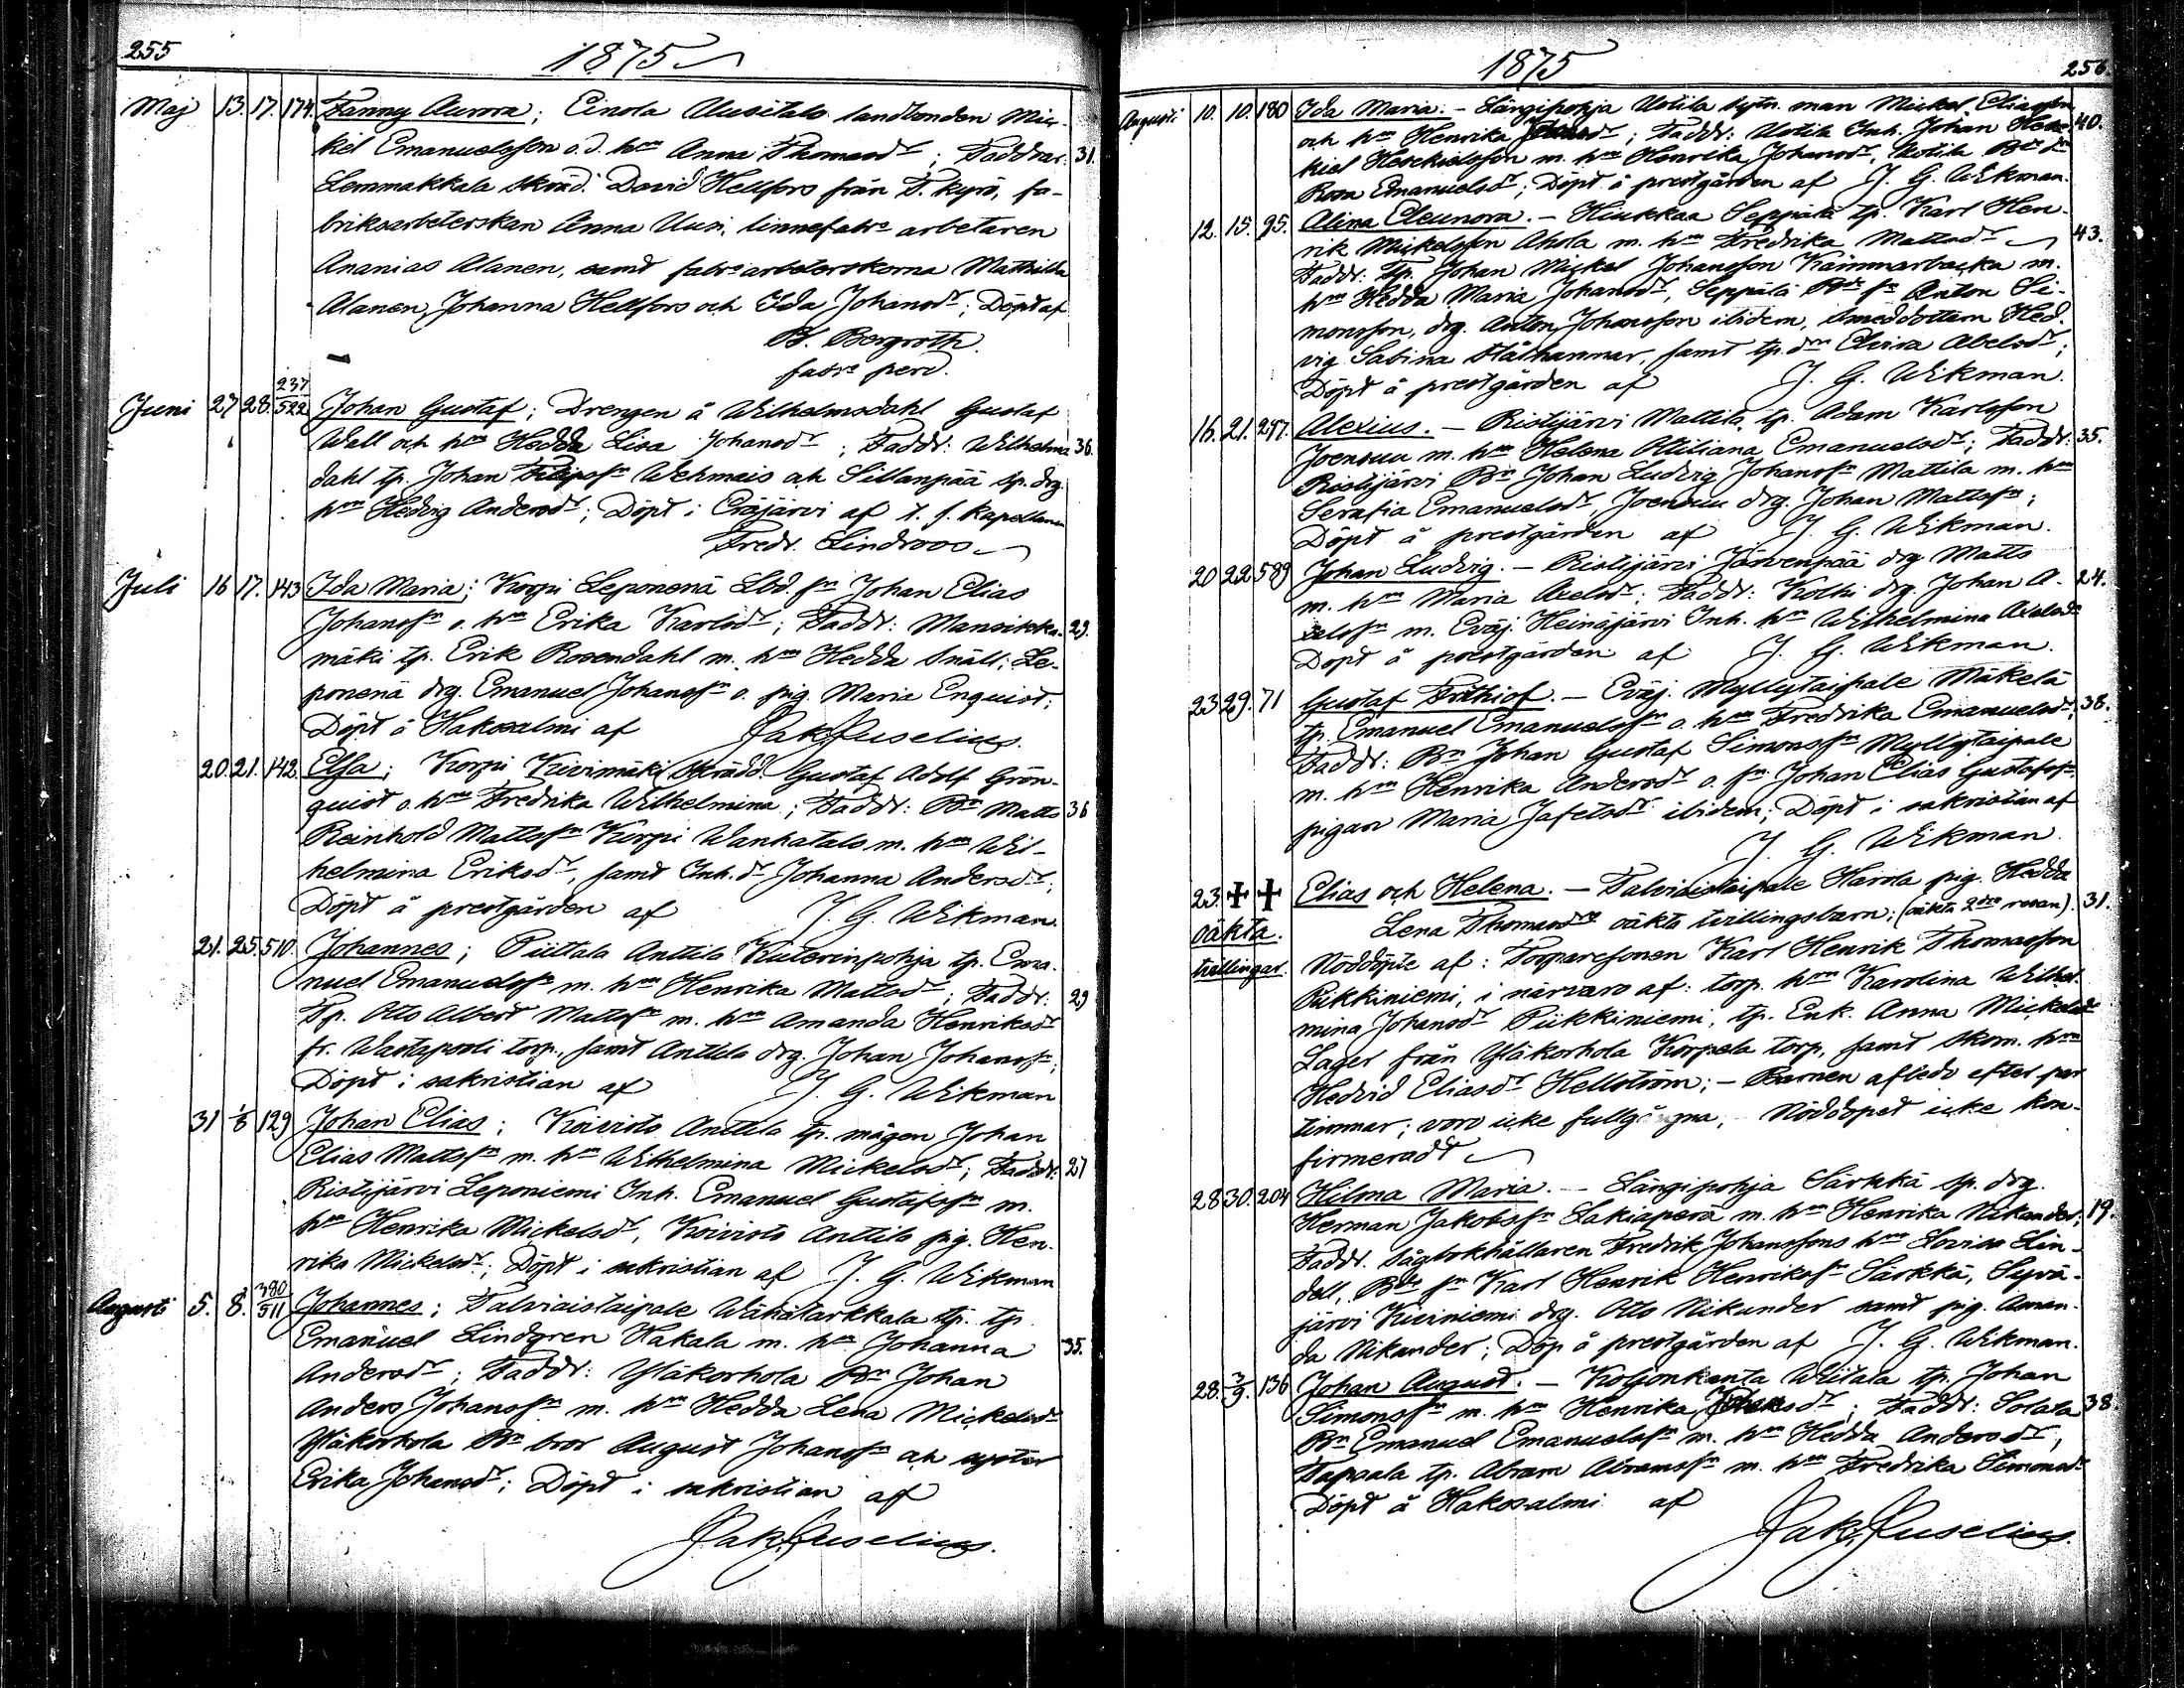 255
1875
Maj 13. 17. 174. Fanny Aurora; Einola Alusitalo landbonden Mic-
kel Emanuelsson o. d. hn Anna Thomasdr; Faddrar: 31.
Lemmakkala skräd. David Hellfors från T. kyrö, fa-
briksarbeterskan Anna Uusi, linnefabrs arbetaren
Ananias Alanen, samt fabrs arbeterskorna Mathilda
Alanen, Johanna Hellfors och Ida Johansdr; Döpt af
B. Bergroth.
fabrs pred.
Juni 27 28. 237/522 Johan Gustaf; Drengen å Wilhelmsdahl Gustaf
Wall och hn Hedda Lisa Johansdr; Faddr: Wilhelms 36.
dahl tp. Johan Filipsn Wehmais och Sillanpää sp. drg
hn Hedvig Andersdr; Döpt i Eräjärvi af t. f. Kapellanen
Fredr. Lindroos
Juli 16 17. 143 Ida Maria; Korpi Leponenä Lbd. sn Johan Elias
Johanssn o. hn Erika Karlsdr; Faddr: Mansikka- 29.
mäki tp. Erik Rosendahl m. hn Hedda Snäll; Le-
ponenä drg. Emanuel Johanssn o. pig. Maria Enquist;
Döpt å Hakosalmi af Jak. Juselius.
20. 21. 142. Elsa; Korpi Kivimäki skrädd. Gustaf Adolf Grön-
quist o. hn Fredrika Wilhelmina; Faddr: Bn Matts 36
Reinhold Mattssn Korpi Wanhatalo m. hn Wil-
helmina Eriksdr, samt Inh. dr Johanna Andersdr;
Döpt å prestgården af J. G. Wikman.
21. 25. 510. Johannes; Piittala Anttila Kuterinpohja tp. Ema-
nuel Emanuelssn m. hn Henrika Mattsdr; Faddr: 29
Tp. Otto Albert Mattssn m. hn Amanda Henriksdr
fr. Wastapooli torp, samt Anttila drg. Johan Johanssn;
Döpt i sakristian af J. G. Wikman
31 1/8 129 Johan Elias; Koivisto Anttila tp. mågen Johan
Elias Mattssn m. hn Wilhelmina Mickelsdr; Faddr: 27
Ristijärvi Leponiemi Inh. Emanuel Gustafssn m.
hn Henrika Mickelsdr, Koivisto Anttila pig. Hen-
rika Mickelsdr; Döpt i sakristian af J. G. Wikman
Augusti 5. 8. 380/511 Johannes; Talviaistaipale Wähätarkkala tp.
Emanuel Lindgren Hakala m. hn Johanna 35.
Andersdr; Faddr: Yläkorhola Bn Johan
Anders Johanssn m. hn Hedda Lena Mickelsdr
Yläkorhola Bn bror August Johanssn och syster
Erika Johansdr; Döpt i sakristian af
Jak. Juselius.
1875
256.
Augusti 10. 10. 180 Ida Maria. - Längipohja Uotila sytn. man Mickel Eliasson
och hn Henrika; Faddr: Uotila Inh. Johan Hese- 40.
kiel Hesekielsson m. hn Henrika Johansdr, Uotila
Rosa Emanuelsdr; Döpt å prestgården af J. G. Wikman.
12. 15. 95. Alina Eleunora. - Hiukkaa Seppälä tp. Karl Hen-
rik Mickelsson Ahola m. hn Fredrika Mattsdr 43.
Faddr: tp. Johan Mickel Johansson Kammarbacka m.
hn Hedda Maria Johansdr, Seppälä Bde sn Anton Si-
monsson, drg. Anton Johansson ibidem, smeddottern Hed-
vig Sabina Stålhammar, samt tp. drn Elvira Abelsdr;
Döpt å prestgården af J. G. Wikman.
16. 21. 297. Alexius. - Ristijärvi Mattila, tp. Adam Karlsson
Joensuu m. hn Helena Ottiliana Emanuelsdr; Faddr: 35.
Ristijärvi Bn Johan Ludvig Johanssn Mattila m. hn
Serafia Emanuelsdr, Joensuu drg. Johan Mattssn;
Döpt å prestgården af J. G. Wikman.
20 22. 589 Johan Ludvig. - Ristijärvi Järvenpää drg Matts
m. hn Maria Axelsdr; Faddr: Kolhi drg. Johan A- 24.
xelssn m. Eräj. Heinäjärvi Inh. hn Wilhelmina Axelsdr
Döpt å prestgården af J. G. Wikman.
23 29. 71 Gustaf Frithiof. - Eräj. Myllytaipale Mäkelä
tp. Emanuel Emanuelssn o. hn Fredrika Emanuelsdr; 38.
Faddr: Bn Johan Gustaf Simonssn Myllytaipale
m. hn Henrika Andersdr o. sn Johan Elias Gustafssn,
pigan Maria Jafetsdr ibidem; Döpt i sakristian af
J. G. Wikman.
23. ✝ ✝ Elias och Helena. - Talviaistaipale Harola pig. Hedda
oäkta. Lena Thomasdrs oäkta tvillingsbarn; (oäkta 2dra resan). 31.
tvillingar. Nöddöpte af: Torparesonen Karl Henrik Thomasson
Piikkiniemi, i närvaro af: torp. hn Karolina Wilhel-
mina Johansdr Piikkiniemi, tp. Enk. Anna Mickelsdr
Lager från Yläkorhola Korpela torp, samt skom. hn
Hedvid Eliasdr Hellström; - Barnen afledo efter par
timmar; voro icke fullgångna; Nöddopet icke kon-
firmeradt
28 30. 204 Hilma Maria. - Längipohja Särkkä sp. drg.
Herman Jakobssn Lakiaperä m. hn Henrika Nikander; 19.
Faddr. Sågbokhållaren Fredrik Johanssons hn Lovisa Lin-
dell, Bde sn Karl Henrik Henrikssn Särkkä, Syvä-
järvi Kiviniemi drg. Otto Nikander samt pig. Aman-
da Nikander; Döp. å prestgården af J. G. Wikman.
28. 3/9. 136 Johan August. - Koljonkanta Wiitala tp. Johan
Simonssn m. hn Henrika; Faddr: Solala 38.
Bn Emanuel Emanuelssn m. hn Hedda Andersdr,
Tapsala tp. Abram Abramssn m. hn Fredrika Simonsdr
Döpt å Hakosalmi af
Jak. Juselius.